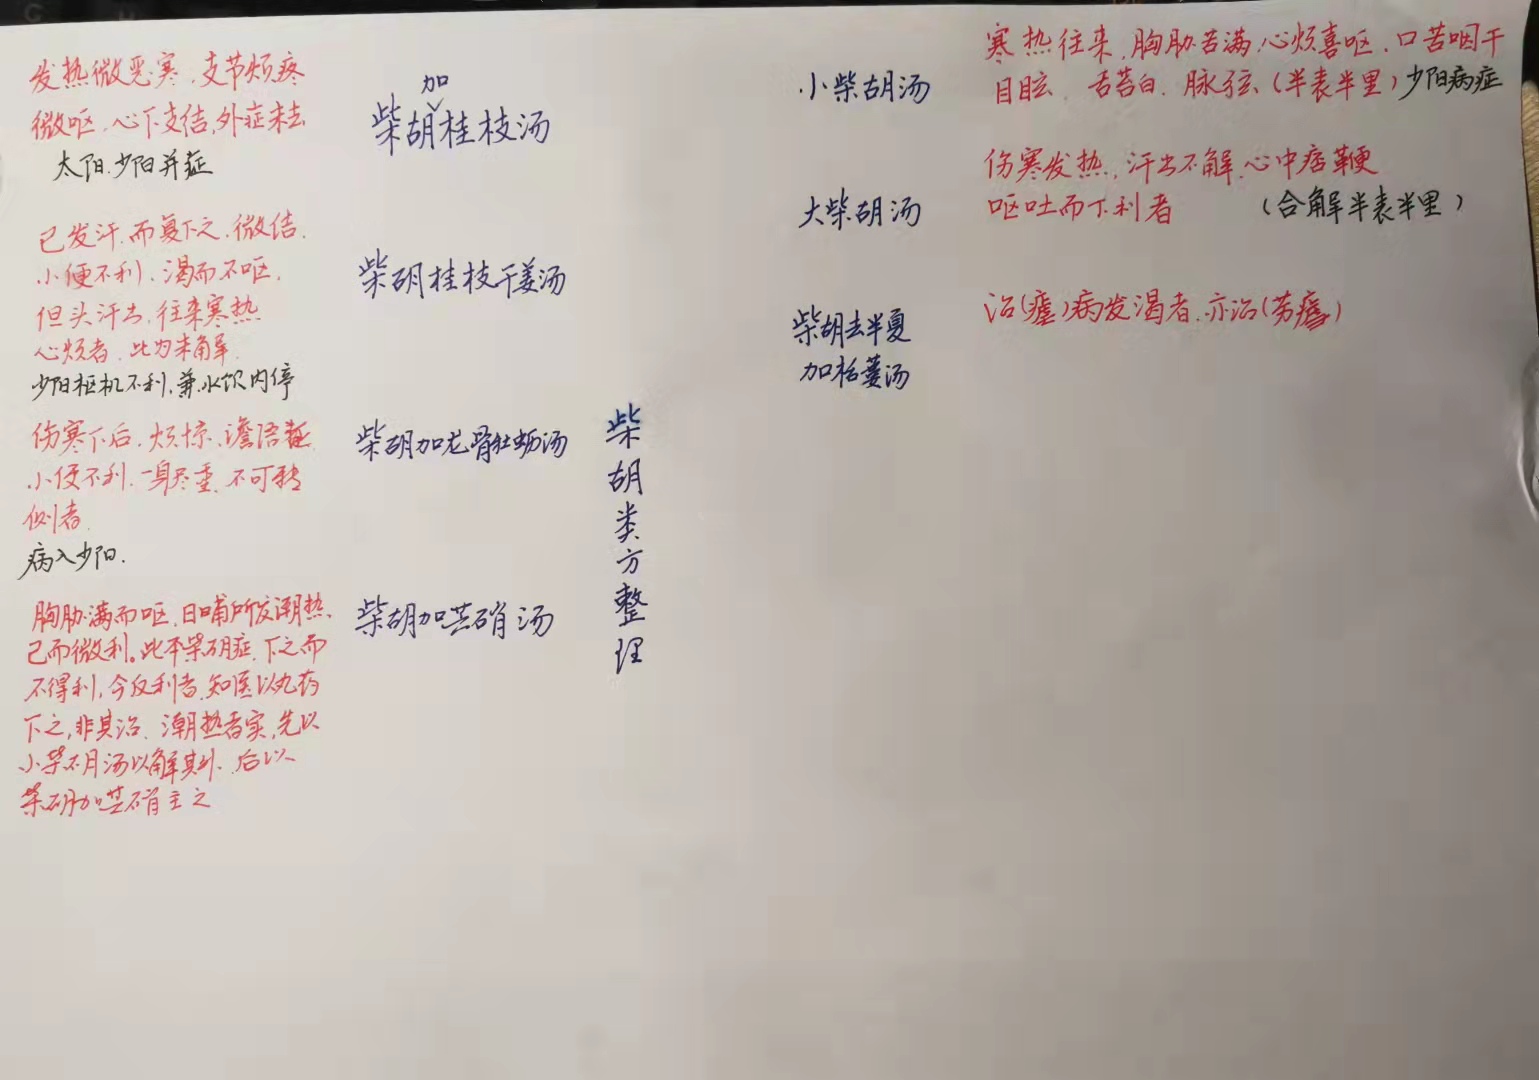 发热微恶寒、支节烦疼
微呕、心下支结,外症未去
太阳、少阳并症
加
柴胡桂枝汤
已发汗、而复下之、微结、
小便不利、渴而不呕、
但头汗出、往来寒热
心烦者、此为未解、
少阳枢机不利,兼水饮内停
柴胡桂枝干姜汤
伤寒下后、烦惊、谵语
小便不利、一身尽重、不可转
侧者、
病入少阳.
柴胡加龙骨牡蛎汤
胸胁满而呕,日哺所发潮热、
已而微利。此本柴胡症、下之而
不得利,今反利者、知医以丸药
下之,非其治、潮热者实,先以
小柴胡汤以解其外、后以
柴胡加芒硝主之
柴胡加芒硝汤
柴
胡
类
方
整
理
小柴胡汤
寒热往来、胸胁苦满、心烦喜呕、口苦咽干
目眩、舌苔白、脉弦、(半表半里)少阳病症
大柴胡汤
伤寒发热,汗出不解、心中痞鞕
呕吐而下利者 (合解半表半里)
柴胡去半夏
加栝蒌汤
治(疟)病发渴者、亦治(劳疟)